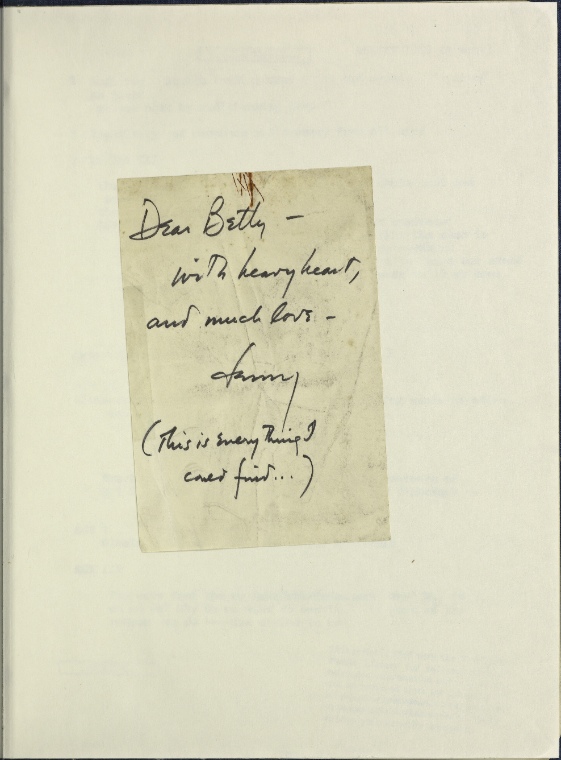 Dear Betty –
with heavy heart,
and much love –
(This is everything I
could find...)